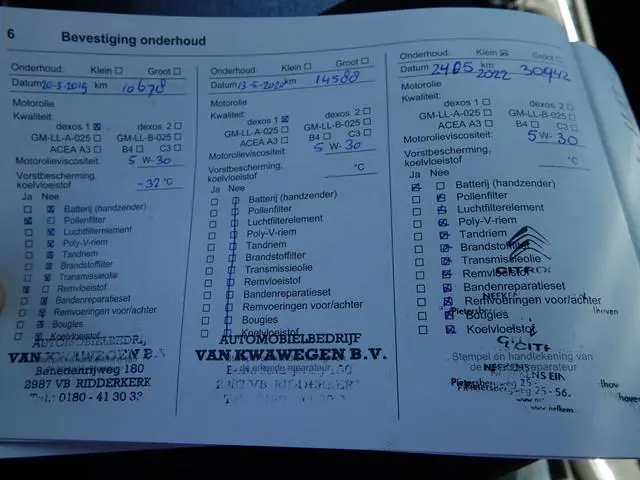 6 Bevestiging onderhoud
Onderhoud: Klein Groot
Datum 20-3-2019 km 10678
Motorolie
Kwaliteit:
dexos 1 dexos 2
GM-LL-A-025 GM-LL-B-025
ACEA A3 B4 C3
Motorolieviscositeit: 5 W- 30
Vorstbescherming,
koelvloeistof -32 °C
Ja Nee
Batterij (handzender)
Pollenfilter
Luchtfilterelement
Poly-V-riem
Tandriem
Brandstoffilter
Transmissieolie
Remvloeistof
Bandenreparatieset
Remvoeringen voor/achter
Bougies
Koelvloeistof
AUTOMOBIELBEDRIJ
VAN KWAWEGEN B.V.
Benedenrijweg 180
2987 VB RIDDERKERK
Tel.: 0180 - 41 30 3
Onderhoud: Klein Groot
Datum 13-5-2020 km 14588
Motorolie
Kwaliteit:
dexos 1 dexos 2
GM-LL-A-025 GM-LL-B-025
ACEA A3 B4 C3
Motorolieviscositeit: 5 W- 30
Vorstbescherming,
koelvloeistof °C
Ja Nee
Batterij (handzender)
Pollenfilter
Luchtfilterelement
Poly-V-riem
Tandriem
Brandstoffilter
Transmissieolie
Remvloeistof
Bandenreparatieset
Remvoeringen voor/achter
Bougies
Koelvloeistof
AUTOMOBIELBEDRIJF
VAN KWAWEGEN B.V.
de erkende reparateur
2987 VB RIDDERKERK
Onderhoud: Klein Groot
Datum 24 05 2022 km 30942
Motorolie
Kwaliteit:
dexos 1 dexos 2
GM-LL-A-025 GM-LL-B-025
ACEA A3 B4 C3
Motorolieviscositeit: 5 W- 30
Vorstbescherming,
koelvloeistof °C
Ja Nee
Batterij (handzender)
Pollenfilter
Luchtfilterelement
Poly-V-riem
Tandriem
Brandstoffilter
Transmissieolie
Remvloeistof
Bandenreparatieset
Remvoeringen voor/achter
Bougies
Koelvloeistof
Stempel en handtekening van
de reparateur